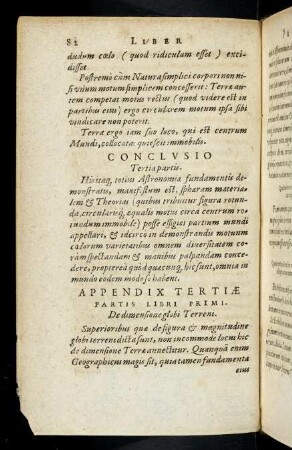 82 LIBER
dudum cœlo (quod ridiculum esset) exci-
disset.
Postremò cùm Natura simplici corpori non ni-
si vnium motum simplicem concesserit: Terræ au-
tem competat motus rectus (quod videre est in
partibus eius) ergo circularem motum ipsa sibi
vindicare non poterit.
Terra ergo iam suo loco, qui est centrum
Mundi, collocata: quiescit: immobilis.
CONCLVSIO
Tertiæ partis.
Hisitaq; totius Astronomiæ fundamentis de-
monstratis, manifestum est, sphæram materia-
lem & Theorias (quibus tribuitur figura rotun-
da, circularisq́, equalis motus circa centrum ro-
tundum immobile) posse effigiem partium mundi
appellari, & idcirco in demonstrandis motuum
cælorum varietatibus omnem diuersitatem co-
ràm spectandam & manibus palpandam conce-
dere, propterea quòd quæcunq; hic sunt, omnia in
mundo eodem modo se habent.
APPENDIX TERTIÆ
PARTIS LIBRI PRIMI.
De dimensione globi Terreni.
Superioribus quæ de figura & magnitudine
globi terreni dicta sunt, non incommodè locus hic
de dimensione Terræ annectitur. Quanquā enim
Geographicus magis sit, quia tamen fundamenta
eius